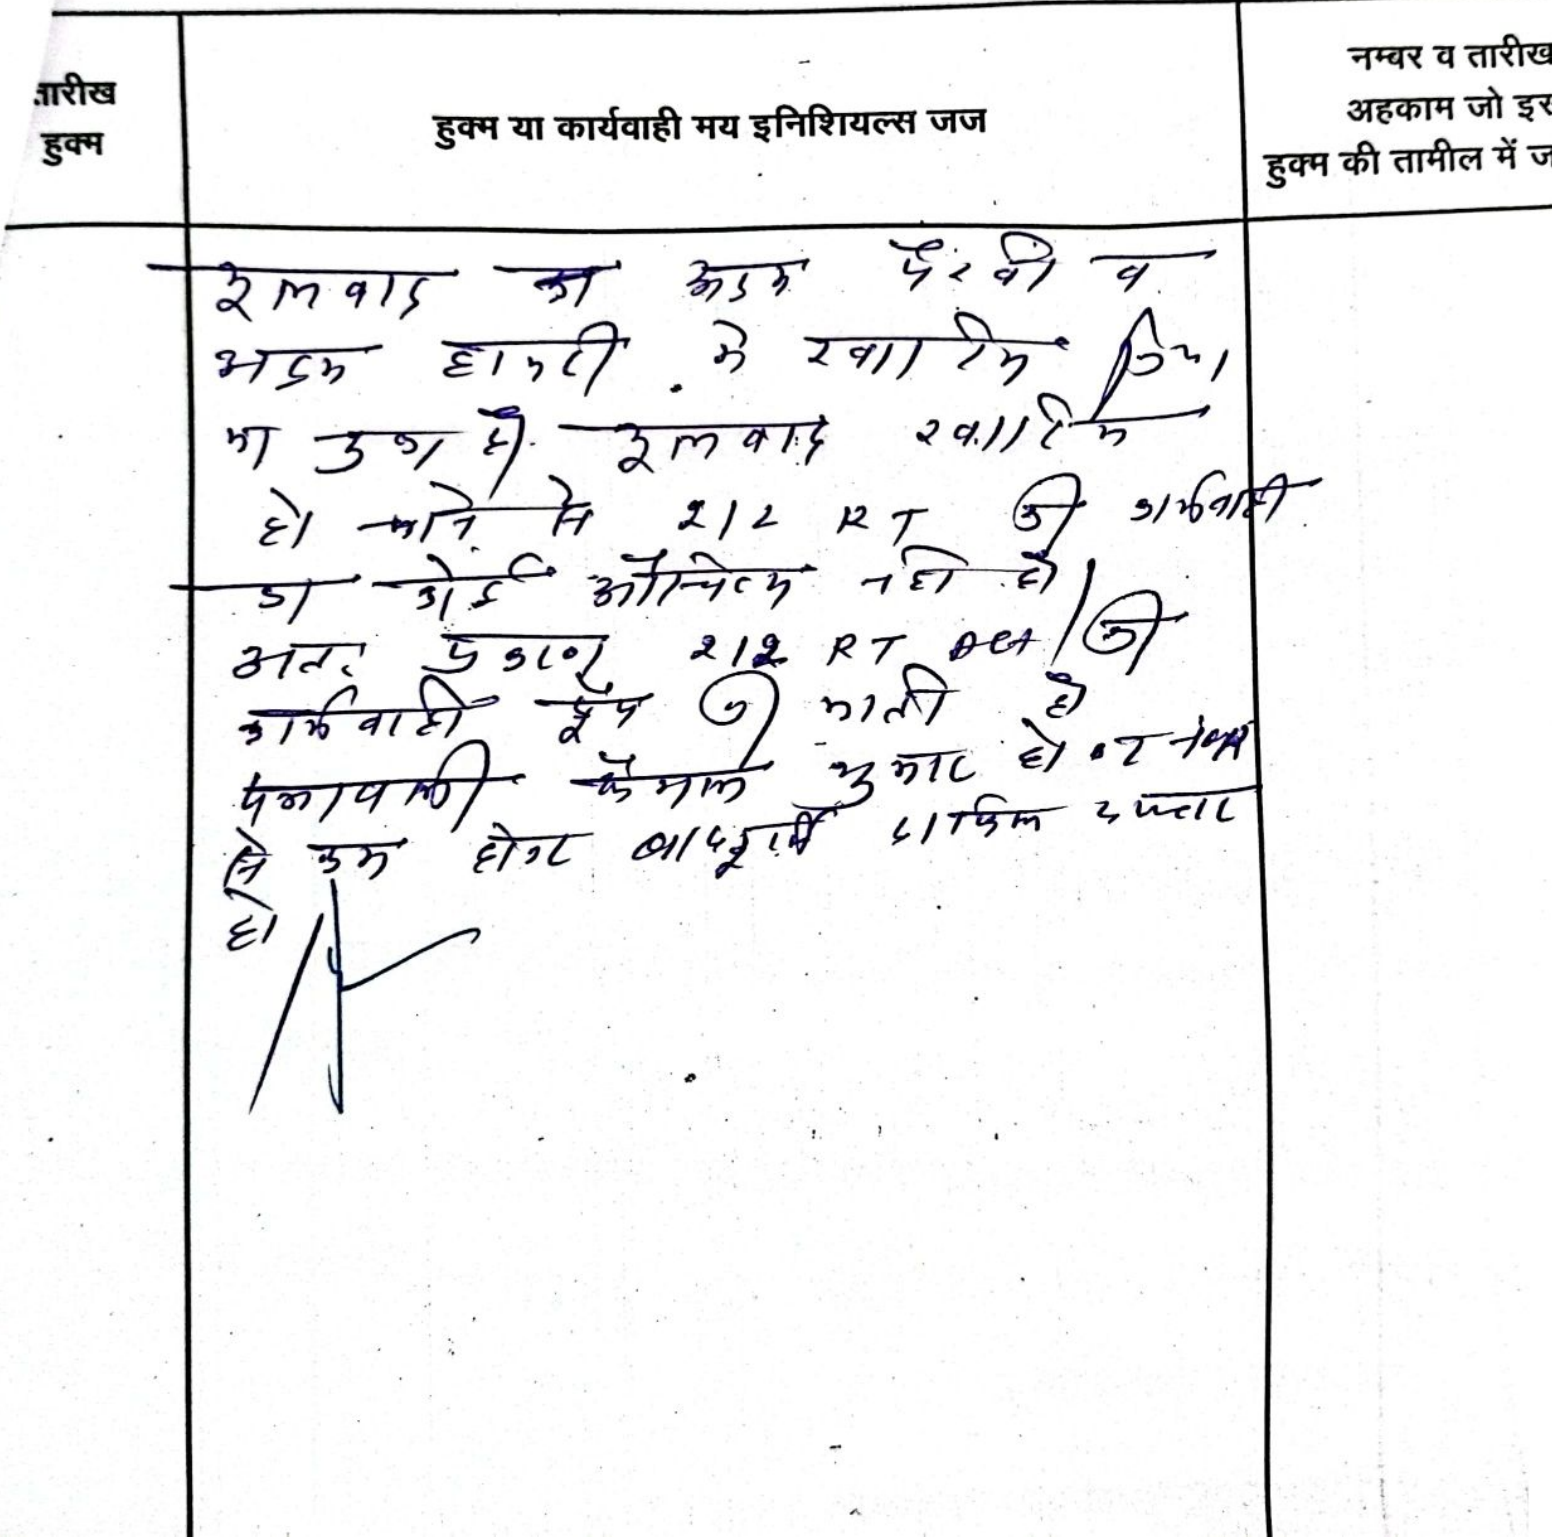 तारीख
हुक्म
हुक्म या कार्यवाही मय इनिशियल्स जज
नम्बर व तारीख
अहकाम जो इस
हुक्म की तामील में ज
मूलवाद का अदम पैरवी व
अदम हाजरी मे खारिज किया
जा चुका है। मूलवाद खारिज
हो जाने से 212 RT की कार्यवाही
का कोई औचित्य नही है।
अतः प्रकरण 212 RT Act की
कार्यवाही ड्रॉप की जाती है
पत्रावली फैसल शुमार होकर नम्बर
से कम होकर बादपूर्ति दाखिल दफ्तर
हो